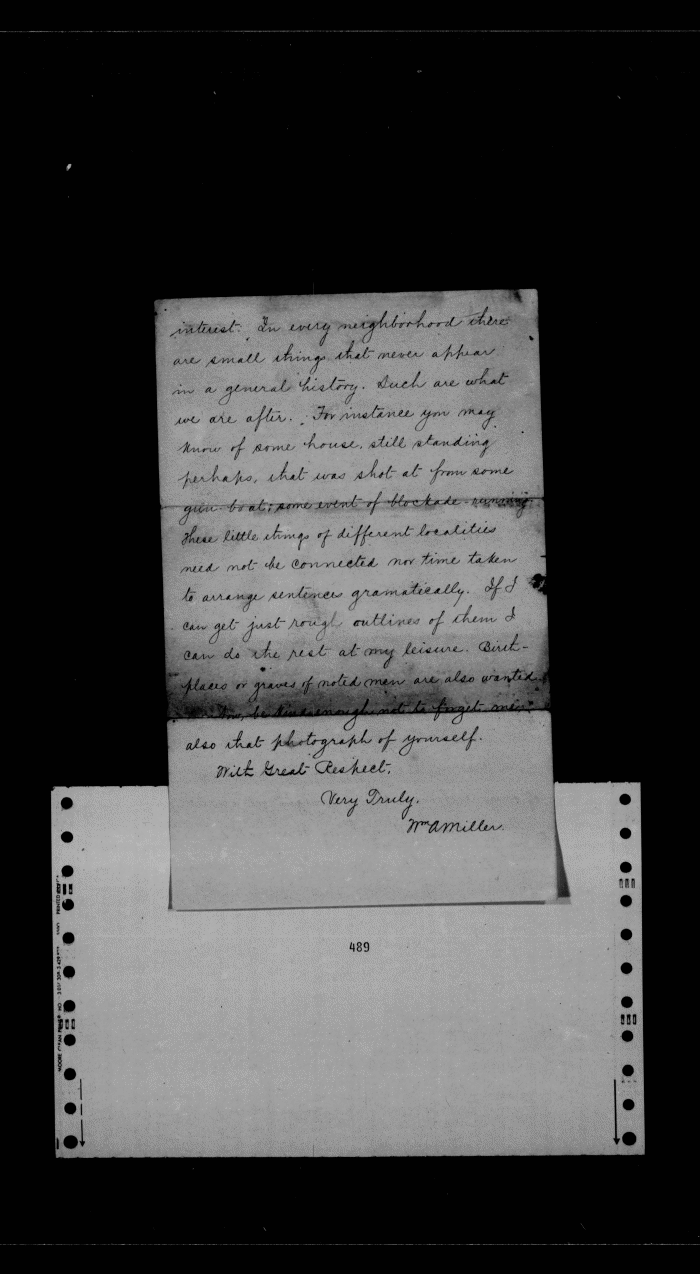 interest. In every neighborhood there
are small things that never appear
in a general history. Such are what
we are after. For instance you may
know of some house, still standing
perhaps, that was shot at from some
gun-boat; some event of blockade-running
These little things of different localities
need not be connected nor time taken
to arrange sentences gramatically. If I
can get just rough outlines of them I
can do the rest at my leisure. Birth-
places or graves of noted men are also wanted.
Now, be kind enough not to forget me;
also that photograph of yourself.
With Great Respect,
Very Truly,
Wm A Miller.
489